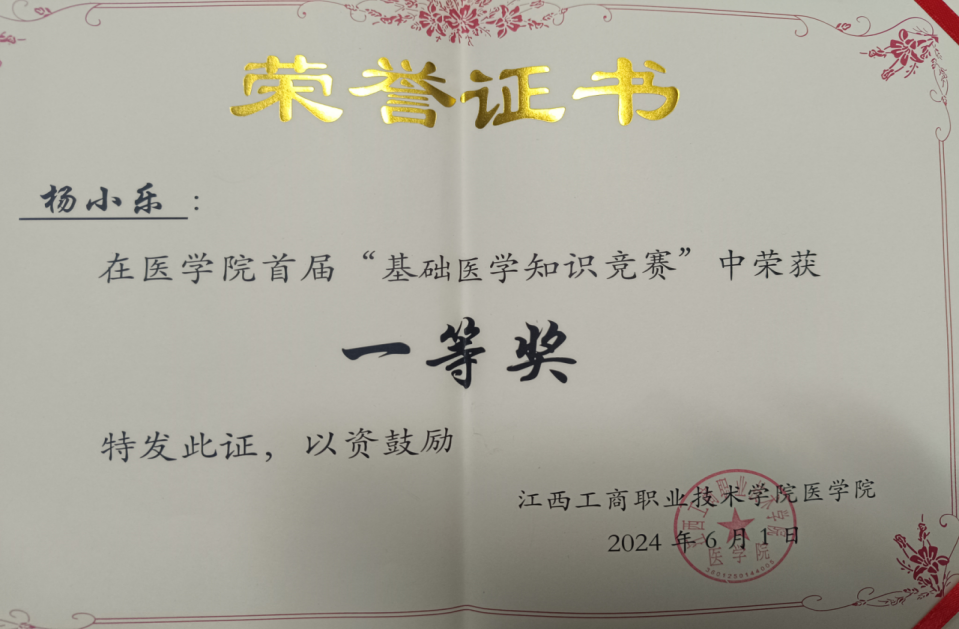 荣誉证书
杨小乐：
在医学院首届“基础医学知识竞赛”中荣获
一等奖
特发此证，以资鼓励
江西工商职业技术学院医学院
2024年6月1日
医学院